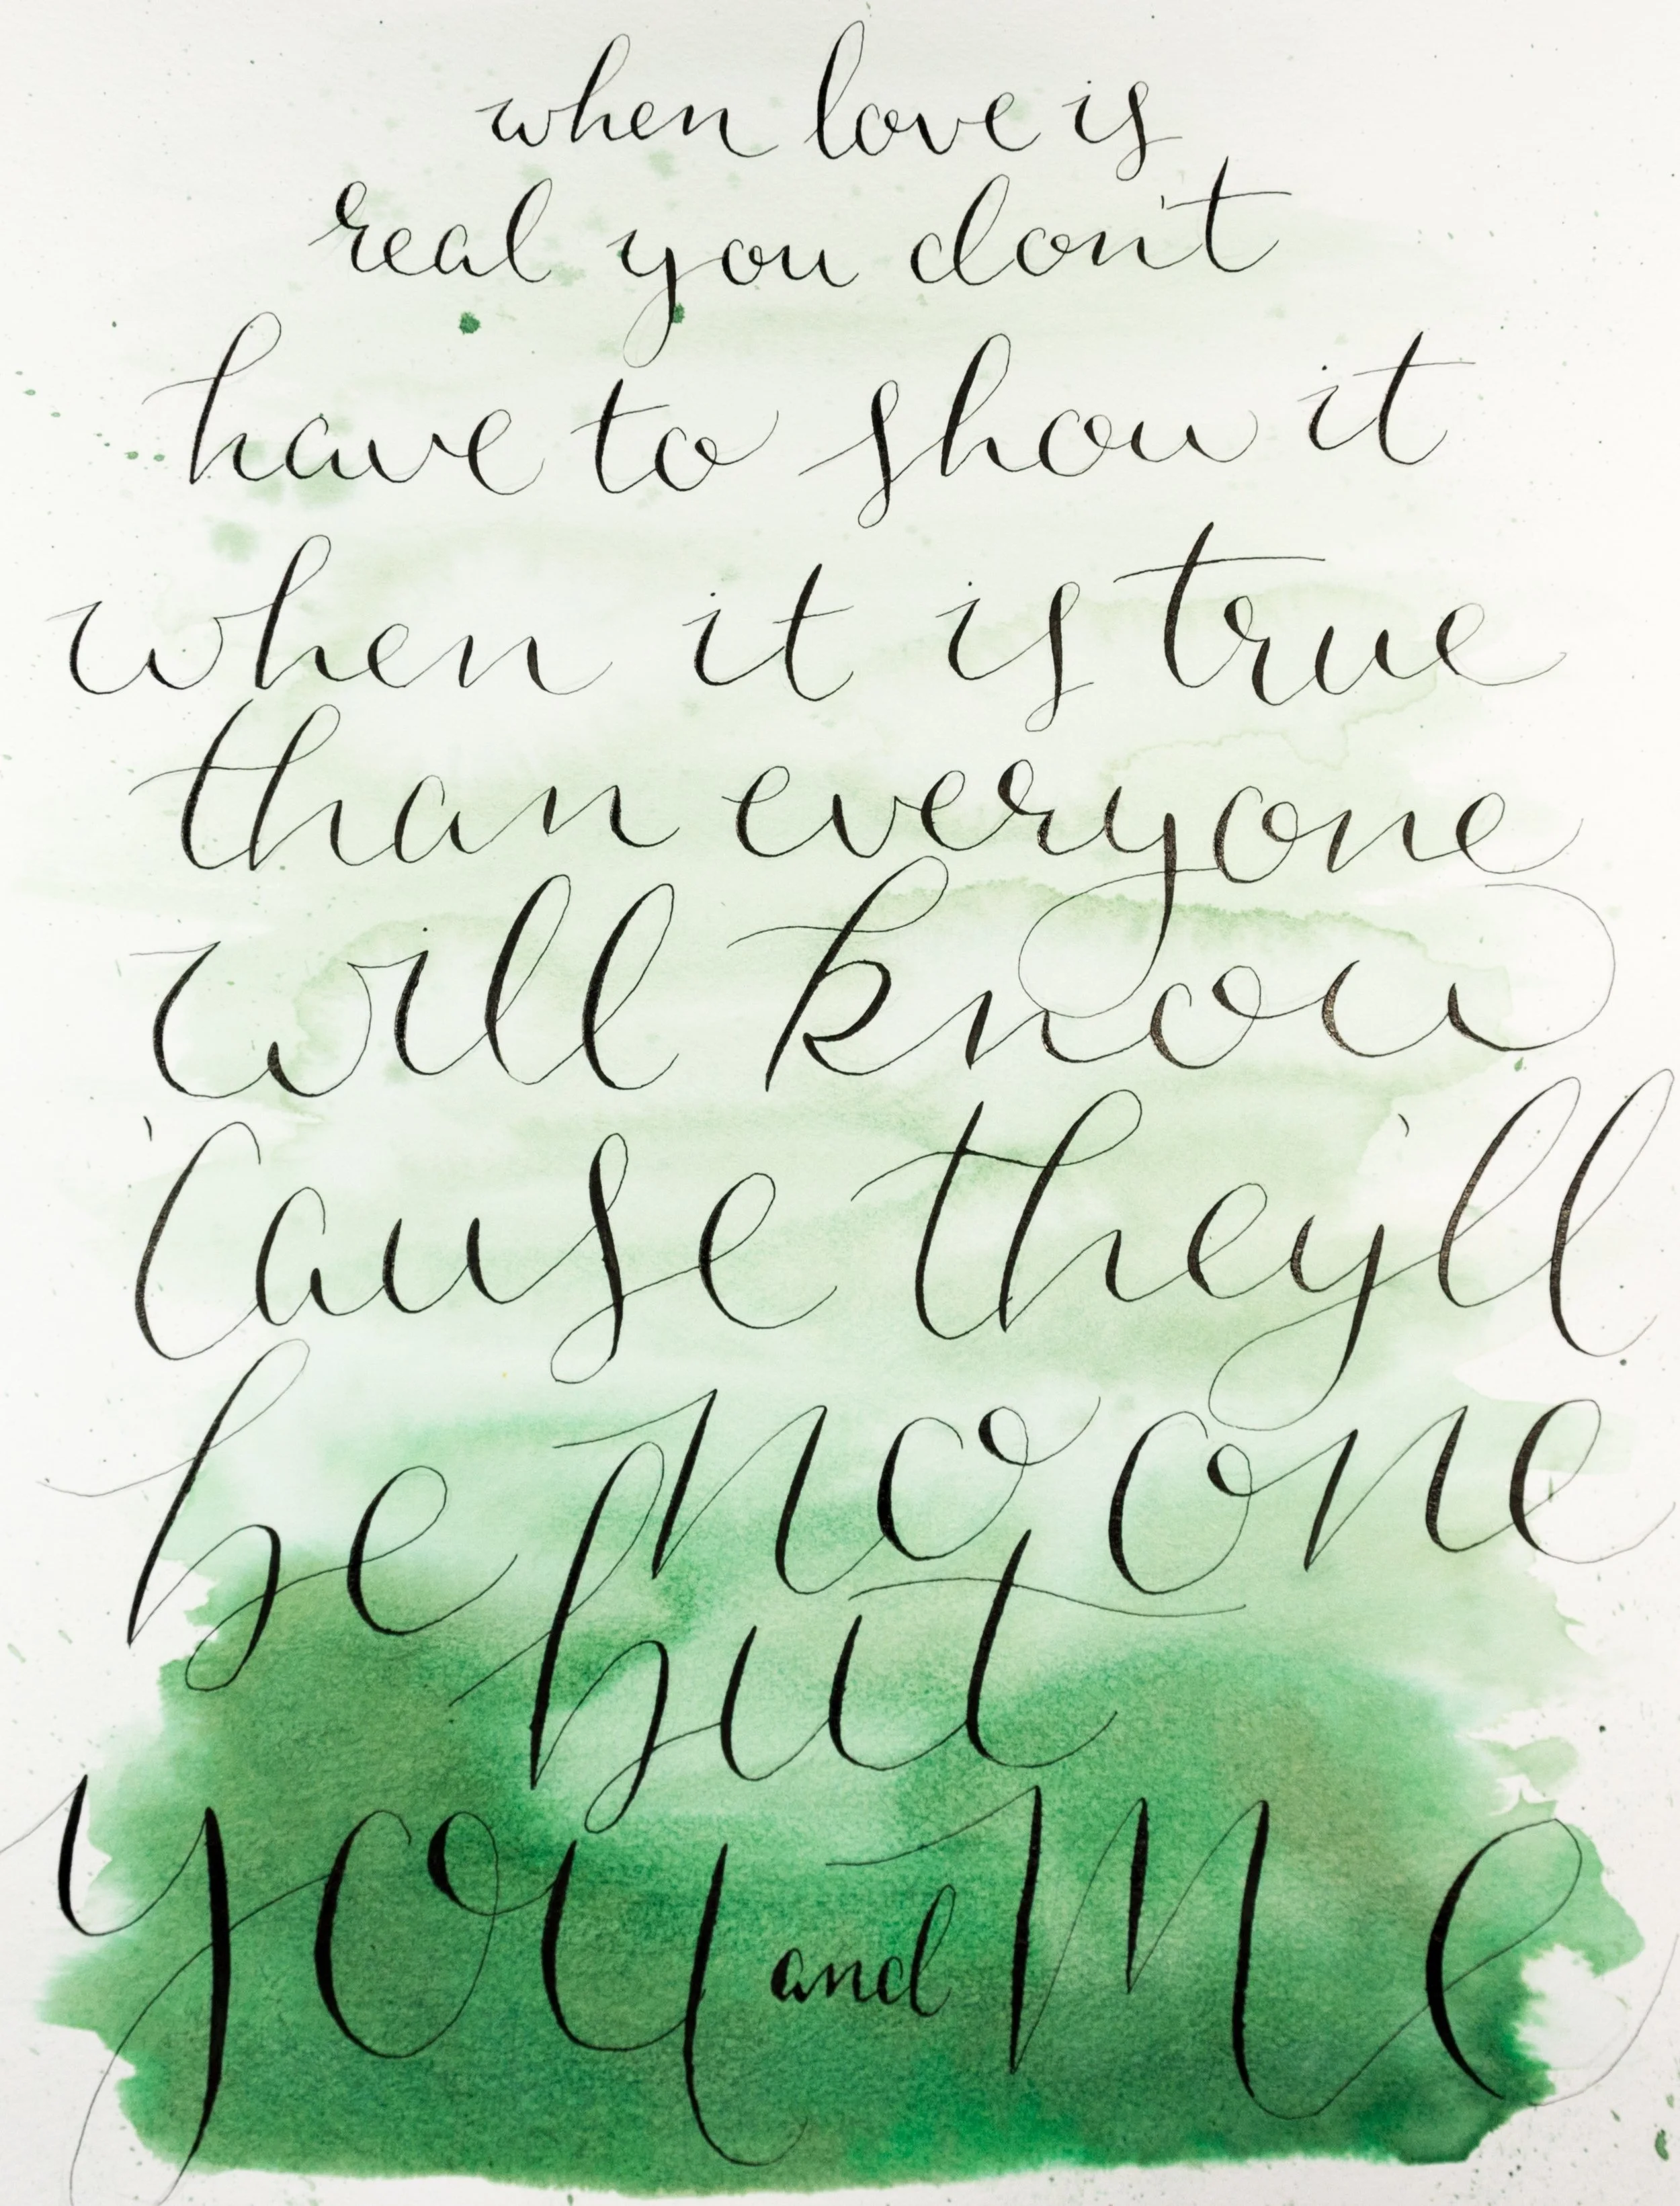 when love is
real you don't
have to show it
when it is true
than everyone
will know
'cause they'll
be no one
but
you and me